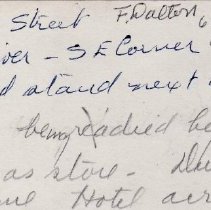 Street F. Dalton
iver - S E Corner
d stand next
being readied be
as store -
me Hotel acr